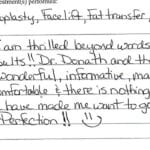 treatment(s) performed:
oplasty, Facelift, Fat transfer,
am thrilled beyond words
ults!! Dr. Donath and th
wonderful, informative, ma
omfortable & there is nothing
have made me want to g
Perfection!!